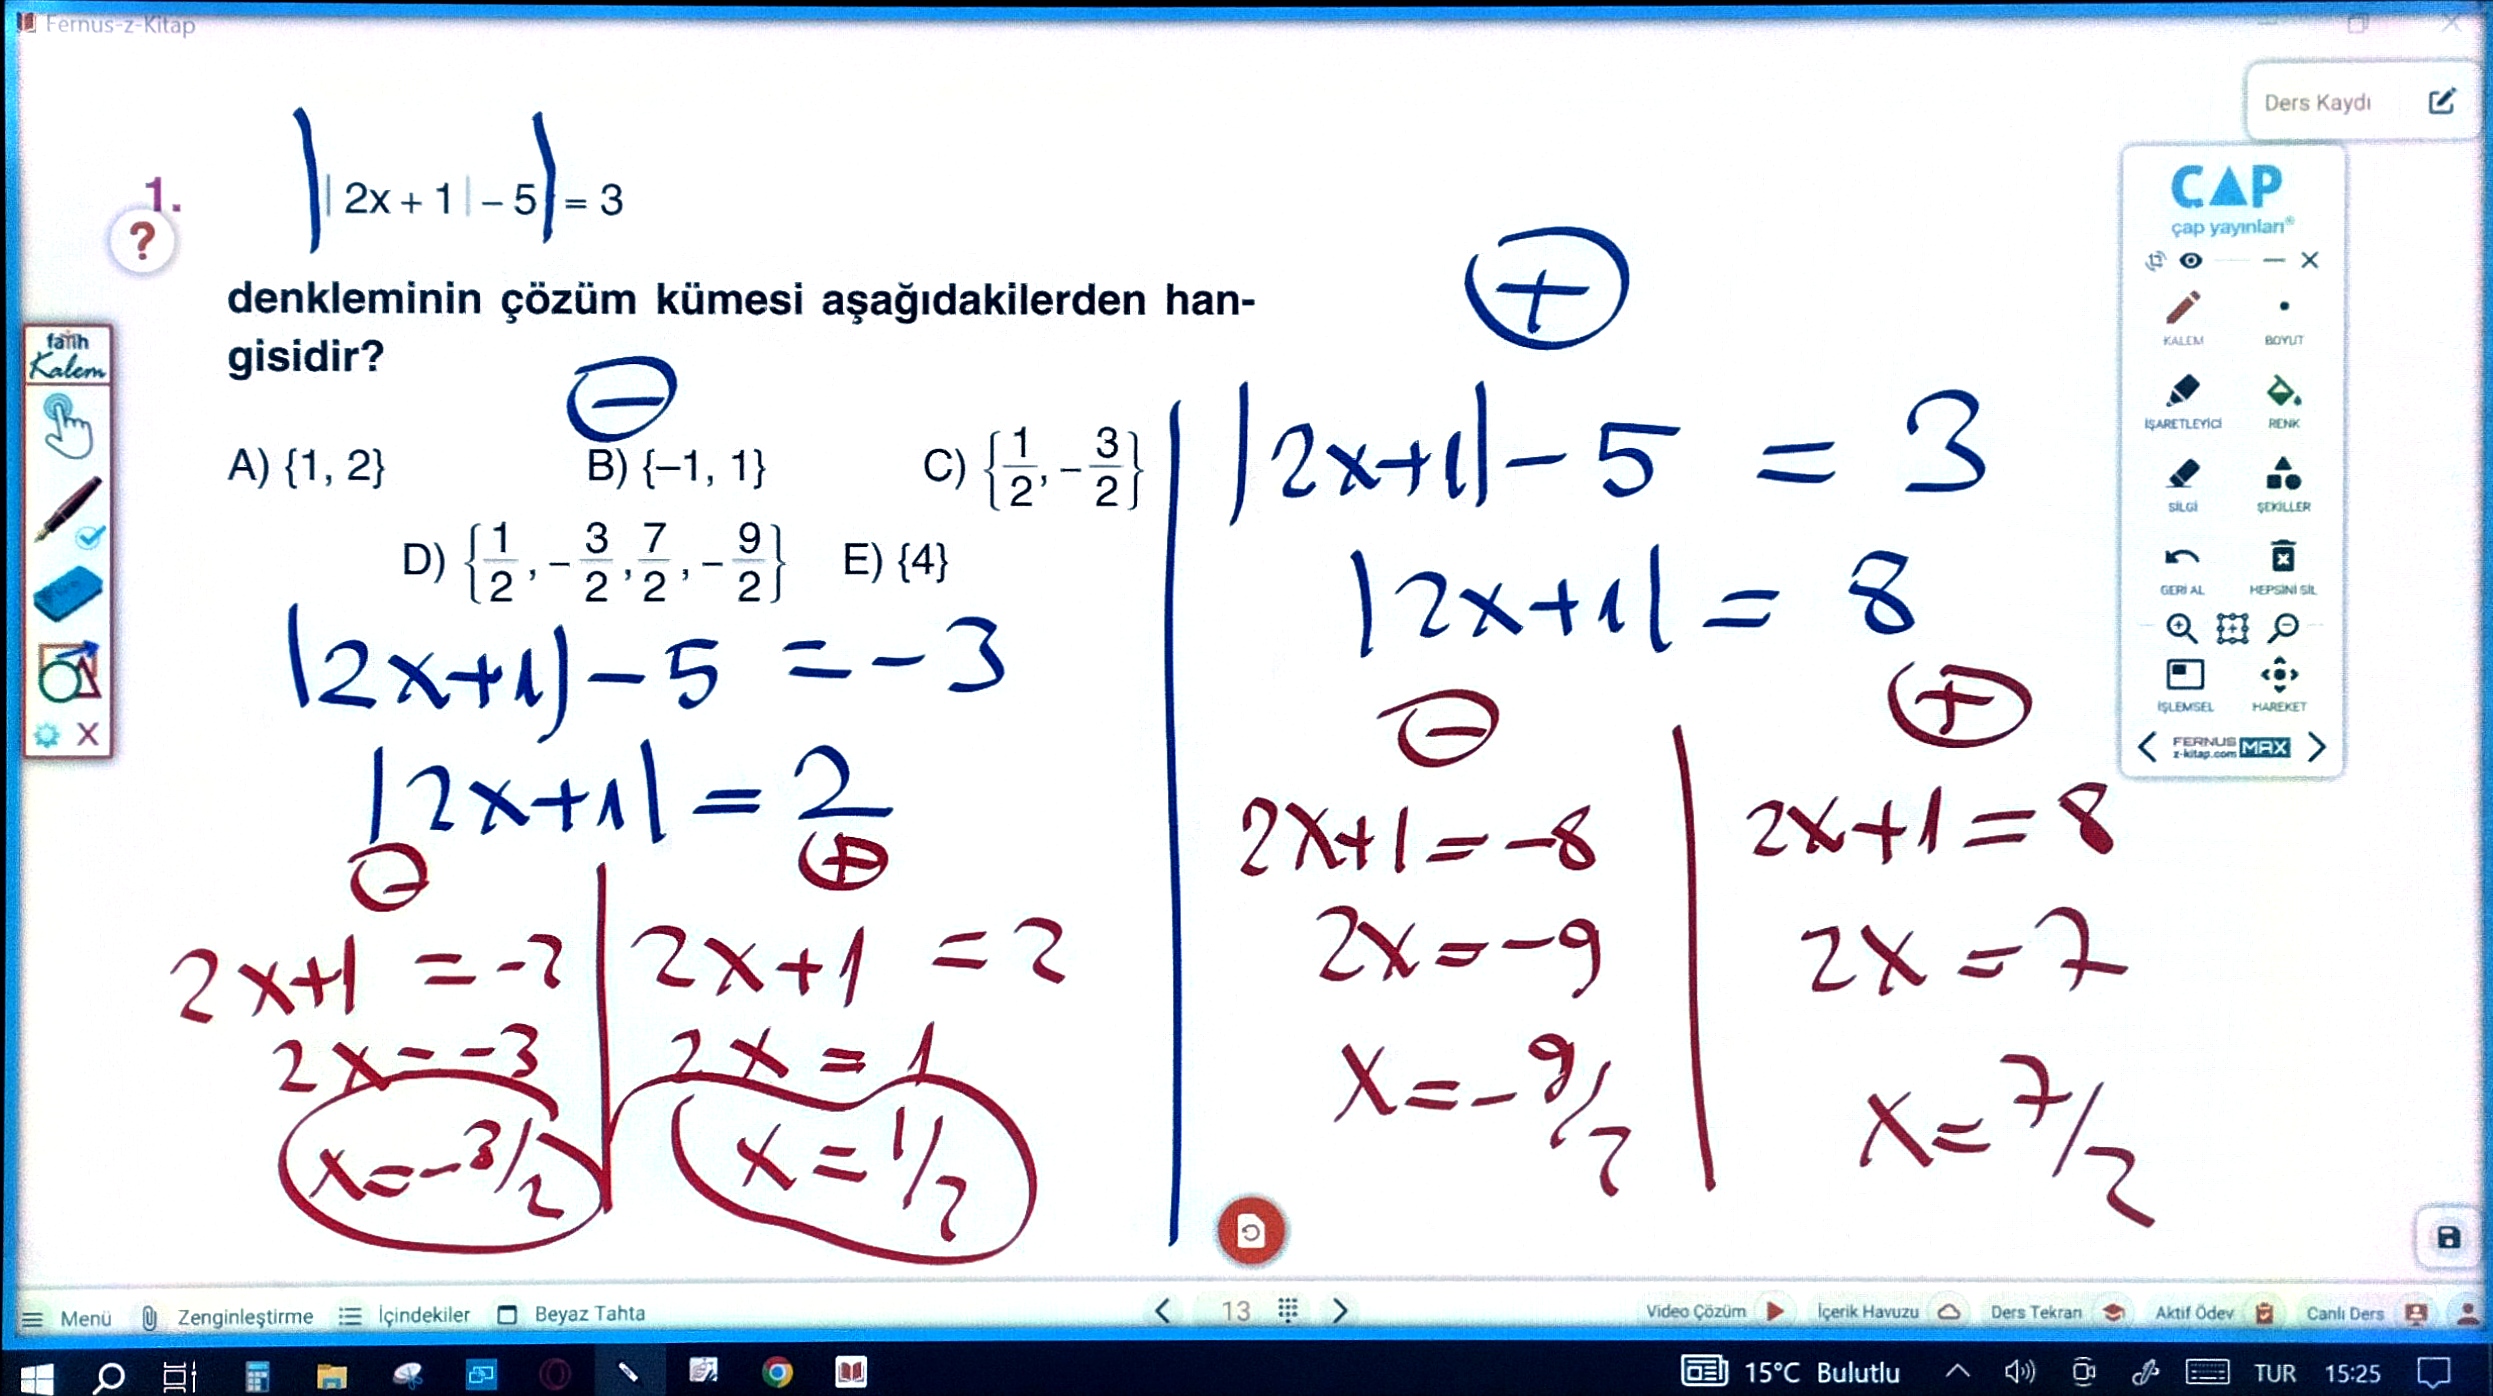 Fernus-z-Kitap
Ders Kaydı
1.
?
||2x + 1| − 5| = 3
denkleminin çözüm kümesi aşağıdakilerden han-
gisidir?
A) {1, 2}
B) {−1, 1}
C) {1/2, −3/2}
D) {1/2, −3/2, 7/2, −9/2}
E) {4}
−
|2x+1|−5 = −3
|2x+1| = 2
−
+
2x+1 = −2
2x = −3
x = −3/2
2x+1 = 2
2x = 1
x = 1/2
+
|2x+1|−5 = 3
|2x+1| = 8
−
+
2x+1 = −8
2x = −9
x = −9/2
2x+1 = 8
2x = 7
x = 7/2
fatih
Kalem
X
ÇAP
çap yayınları®
KALEM
BOYUT
İŞARETLEYİCİ
RENK
SİLGİ
ŞEKİLLER
GERİ AL
HEPSİNİ SİL
İŞLEMSEL
HAREKET
FERNUS MAX
z-kitap.com
Menü
Zenginleştirme
İçindekiler
Beyaz Tahta
13
Video Çözüm
İçerik Havuzu
Ders Tekrarı
Aktif Ödev
Canlı Ders
15°C Bulutlu
TUR
15:25